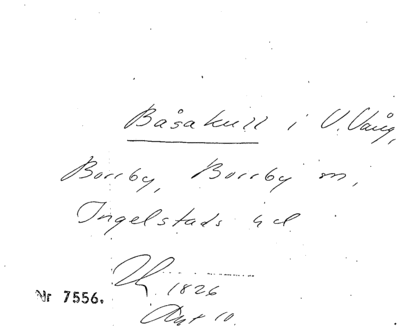 Båsakull i V. Vång,
Borrby, Borrby sn,
Ingelstads hd
1826
Akt 10.
Nr 7556.